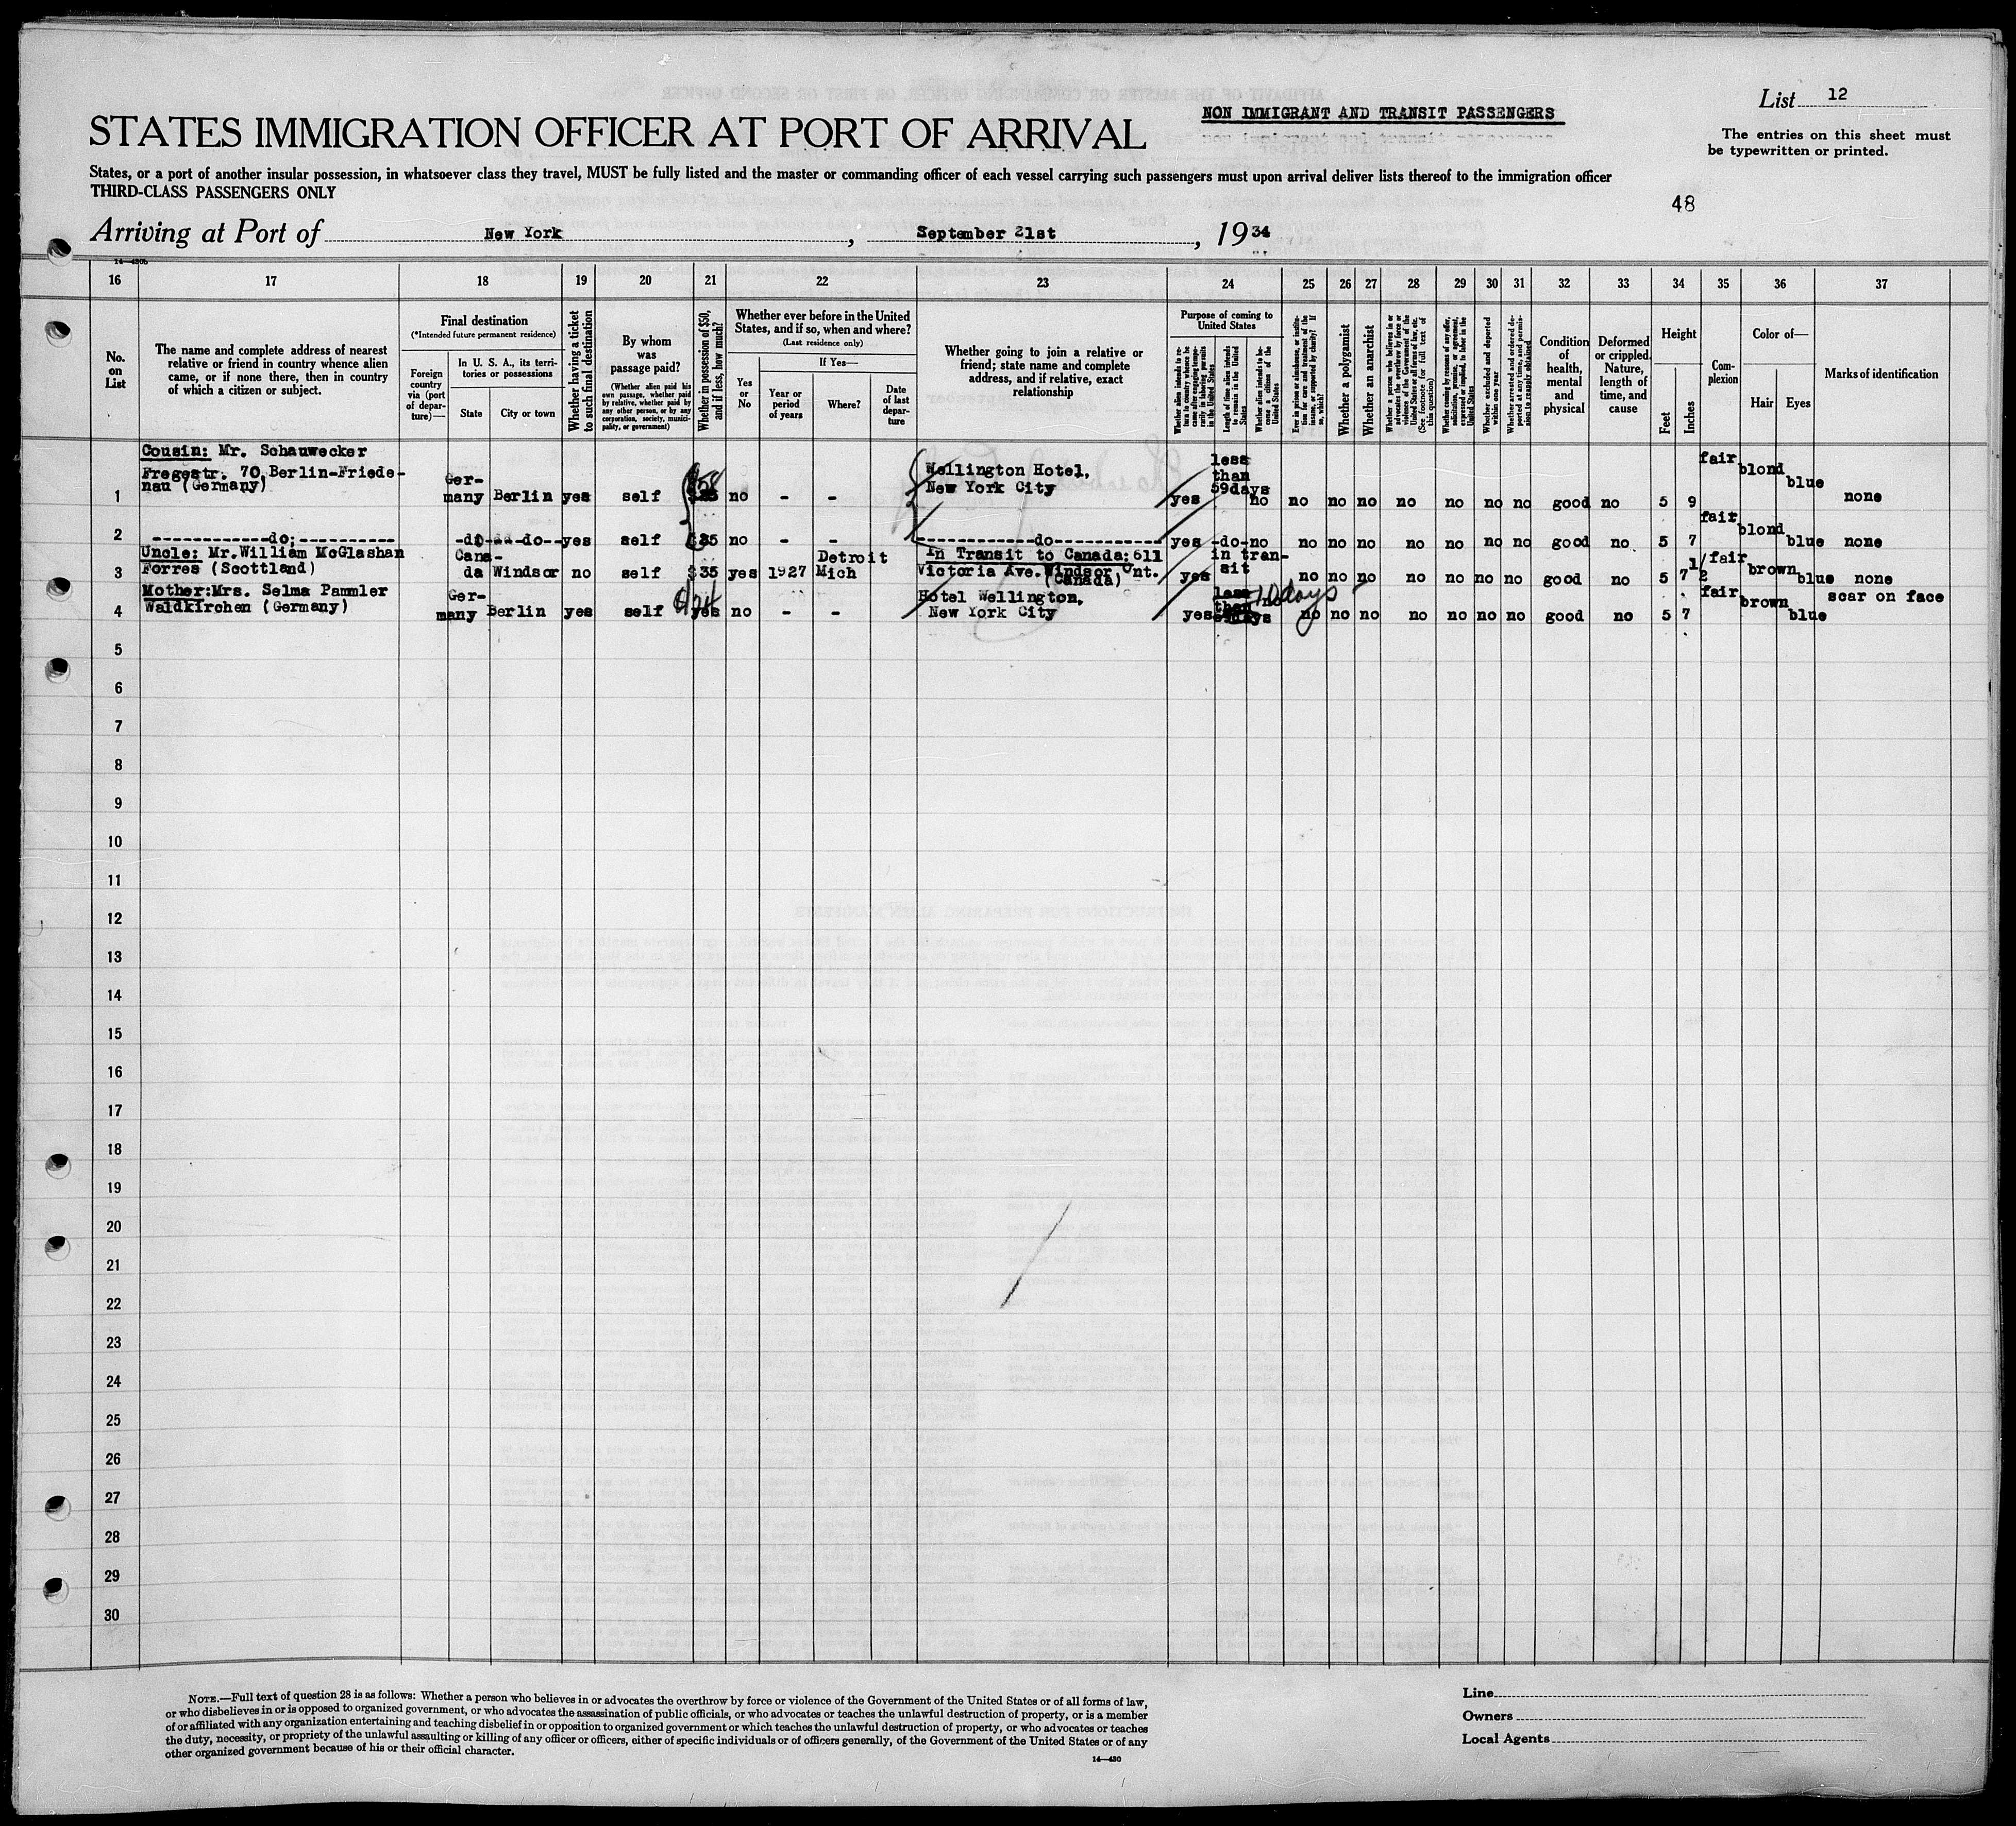 NON IMMIGRANT AND TRANSIT PASSENGERS
List 12
STATES IMMIGRATION OFFICER AT PORT OF ARRIVAL
The entries on this sheet must
be typewritten or printed.
States, or a port of another insular possession, in whatsoever class they travel, MUST be fully listed and the master or commanding officer of each vessel carrying such passengers must upon arrival deliver lists thereof to the immigration officer
THIRD-CLASS PASSENGERS ONLY
48
Arriving at Port of New York, September 21st, 1934
14—430b
16 17 18 19 20 21 22 23 24 25 26 27 28 29 30 31 32 33 34 35 36 37
No.
on
List
The name and complete address of nearest
relative or friend in country whence alien
came, or if none there, then in country
of which a citizen or subject.
Final destination
(*Intended future permanent residence)
Foreign
country
via (port
of depar-
ture)—
In U. S. A., its terri-
tories or possessions
State
City or town
Whether having a ticket
to such final destination
By whom
was
passage paid?
(Whether alien paid his
own passage, whether paid
by relative, whether paid by
any other person, or by any
corporation, society, munici-
pality, or government)
Whether in possession of $50,
and if less, how much?
Whether ever before in the United
States, and if so, when and where?
(Last residence only)
Yes
or
No
If Yes—
Year or
period
of years
Where?
Date
of last
depar-
ture
Whether going to join a relative or
friend; state name and complete
address, and if relative, exact
relationship
Purpose of coming to
United States
Whether alien intends to re-
turn to country whence he
came after engaging tempo-
rarily in laboring pursuits
in the United States
Length of time alien intends
to remain in the United
States
Whether alien intends to be-
come a citizen of the
United States
Ever in prison or almshouse, or institu-
tion for care and treatment of the
insane, or supported by charity? If
so, which?
Whether a polygamist
Whether an anarchist
Whether a person who believes in or
advocates the overthrow by force or
violence of the Government of the
United States or all forms of law, etc.
(See footnote for full text of
this question)
Whether coming by reasons of any offer,
solicitation, promise, or agreement,
expressed or implied, to labor in the
United States
Whether excluded and deported
within one year
Whether arrested and ordered de-
ported at any time, and permis-
sion to reapply obtained
Condition
of
health,
mental
and
physical
Deformed
or crippled.
Nature,
length of
time, and
cause
Height
Feet
Inches
Com-
plexion
Color of—
Hair
Eyes
Marks of identification
Cousin: Mr. Schauwecker
Fregestr. 70, Berlin-Friede-
nau (Germany)
1 Ger-
many Berlin yes self no - -
Wellington Hotel,
New York City
yes less
than
59days no no no no no no no no good no 5 9 fair blond blue none
2 ------------do:---------- -do- -do-- yes self $35 no - - ------------do------------ yes -do- no no no no no no no no good no 5 7 fair blond blue none
Uncle: Mr. William McGlashan
Forres (Scottland)
3 Cana-
da Windsor no self $35 yes 1927 Detroit
Mich
In Transit to Canada: 611
Victoria Ave. Windsor Ont.
(Canada)
yes in tran-
sit no no no no no no no good no 5 7 1/2 fair brown blue none
Mother: Mrs. Selma Pammler
Waldkirchen (Germany)
4 Ger-
many Berlin yes self yes no - -
Hotel Wellington,
New York City
yes less
than
59days no 10 days no no no no no no no good no 5 7 fair brown blue scar on face
5
6
7
8
9
10
11
12
13
14
15
16
17
18
19
20
21
22
23
24
25
26
27
28
29
30
NOTE.—Full text of question 28 is as follows: Whether a person who believes in or advocates the overthrow by force or violence of the Government of the United States or of all forms of law,
or who disbelieves in or is opposed to organized government, or who advocates the assassination of public officials, or who advocates or teaches the unlawful destruction of property, or is a member
of or affiliated with any organization entertaining and teaching disbelief in or opposition to organized government or which teaches the unlawful destruction of property, or who advocates or teaches
the duty, necessity, or propriety of the unlawful assaulting or killing of any officer or officers, either of specific individuals or of officers generally, of the Government of the United States or of any
other organized government because of his or their official character.
14—430
Line
Owners
Local Agents